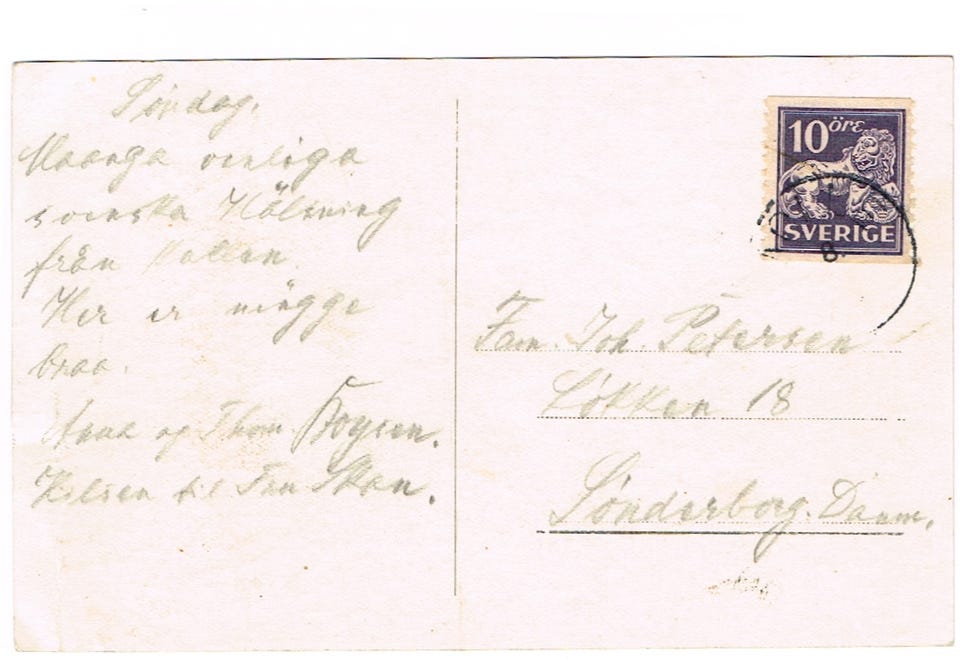 Søndag.
Maanga venliga
svenska Hälsning
från
Her er mögge
braa.
og Thom Boysen.
Hilsen til Fru Skau.
10 öre
SVERIGE
8.
Fam. Joh. Petersen
Løkken 18
Sønderborg. Danm.